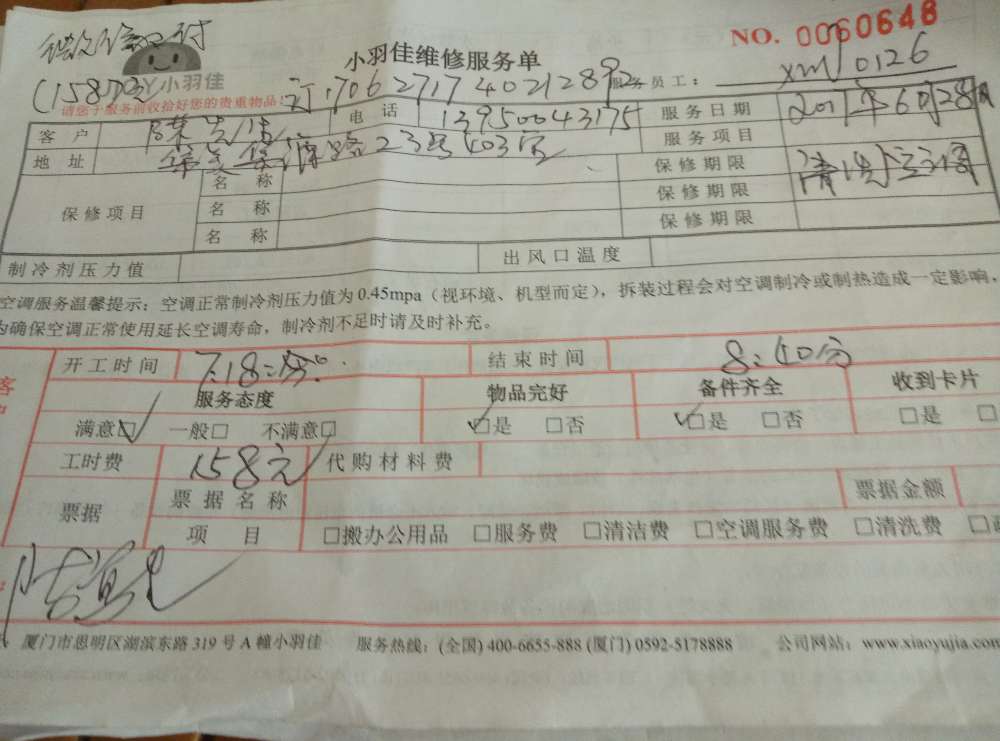 小羽佳维修服务单
NO. 0060648
(158元)
小羽佳
订:706271740212892
服务员工: xm10126
请您于服务前收拾好您的贵重物品
客户 陈先生 电话 13950043175 服务日期 2017年6月28日
地址 23号403室 服务项目 清洗空调
保修项目 名称 保修期限
名称 保修期限
名称 保修期限
制冷剂压力值 出风口温度
空调服务温馨提示:空调正常制冷剂压力值为0.45mpa(视环境、机型而定),拆装过程会对空调制冷或制热造成一定影响,
为确保空调正常使用延长空调寿命,制冷剂不足时请及时补充。
开工时间 7:18分 结束时间 8:40分
服务态度 物品完好 备件齐全 收到卡片
满意☑ 一般□ 不满意□ ☑是 □否 ☑是 □否 □是 □
工时费 158元 代购材料费
票据 票据名称 票据金额
项目 □搬办公用品 □服务费 □清洁费 □空调服务费 □清洗费 □
厦门市思明区湖滨东路319号A幢小羽佳 服务热线:(全国)400-6655-888 (厦门)0592-5178888 公司网站:www.xiaoyujia.com